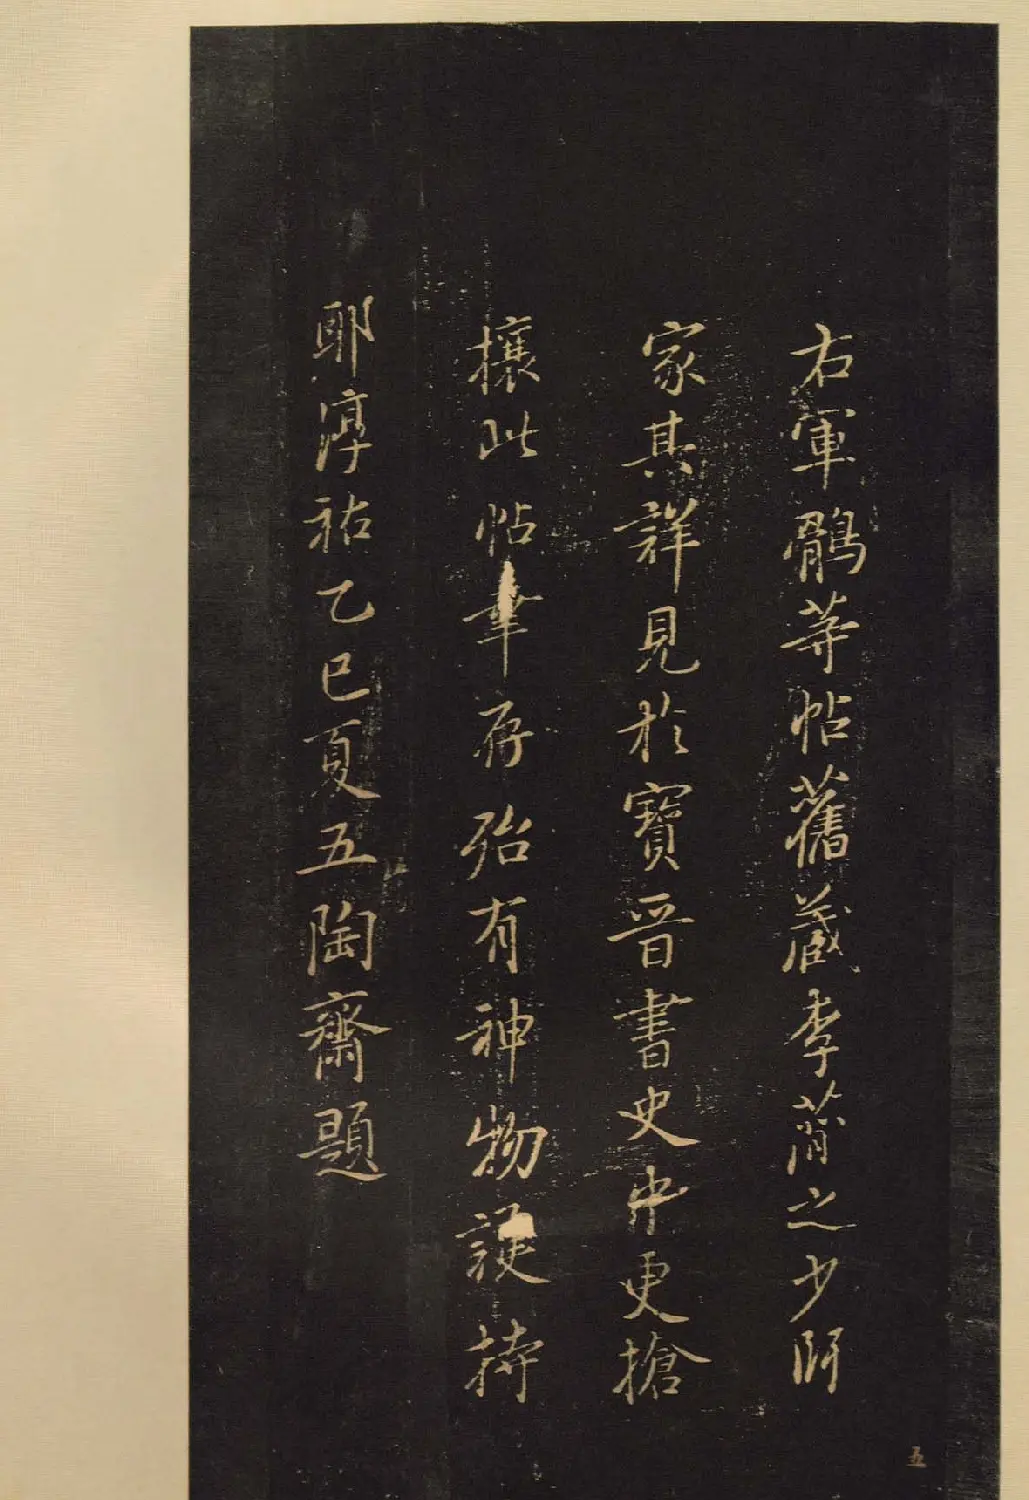 右軍鶻等帖舊藏李蕳之少師
家其詳見於寶晋書史中更搶
攘此帖幸存殆有神物護持
耶淳祐乙巳夏五陶齋題
五